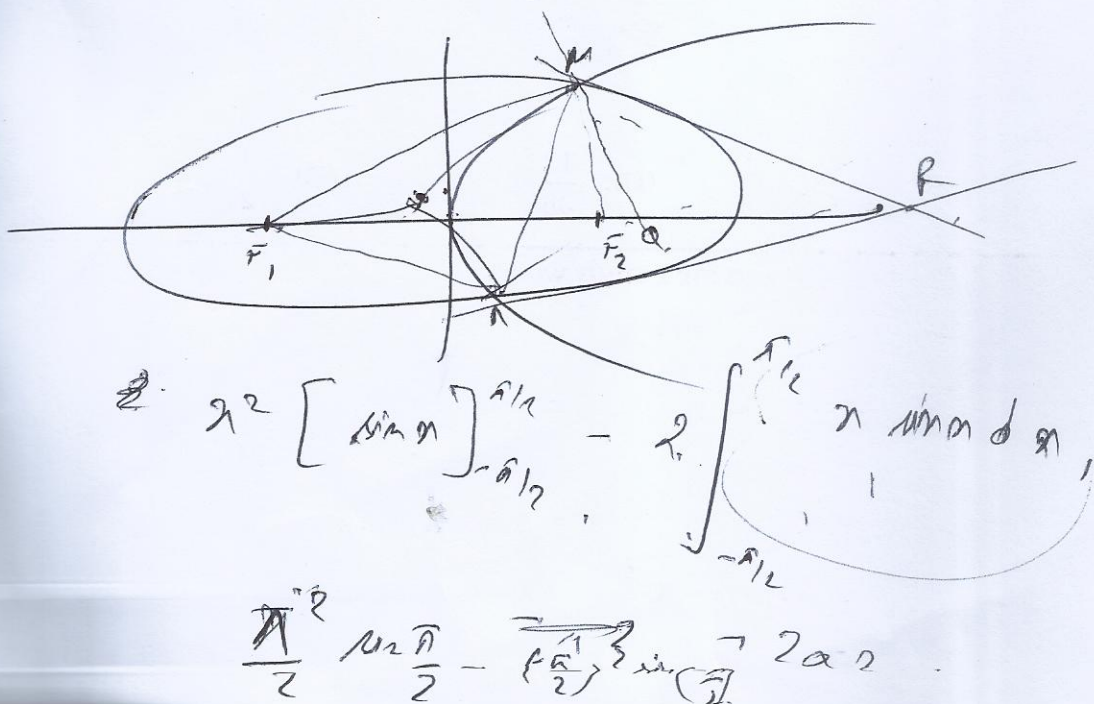 M
R
F₁ F₂
x² [ sin x ]_{-π/2}^{π/2} - 2 ∫_{-π/2}^{π/2} x sin x d x
π²/2 sin π/2 - {-π/2} sin(-π/2)